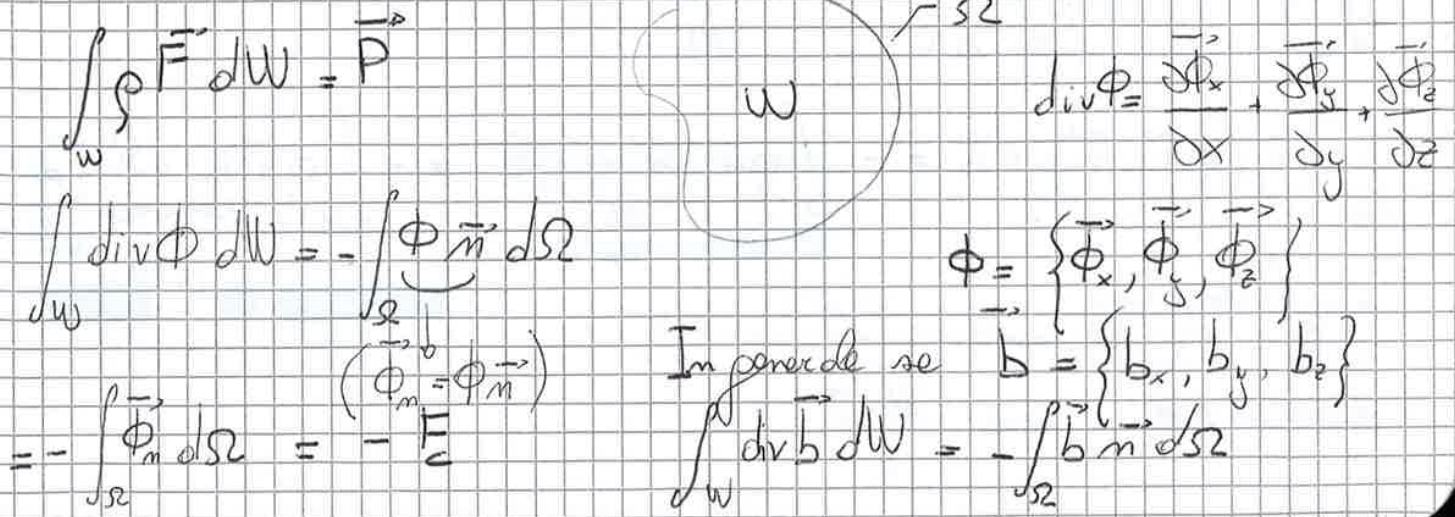 ∫_W ρ F⃗ dW = P⃗
W
Ω
div Φ = ∂Φ⃗x/∂x + ∂Φ⃗y/∂y + ∂Φ⃗z/∂z
∫_W div Φ dW = - ∫_Ω Φ n⃗ dΩ
Φ = {Φ⃗x, Φ⃗y, Φ⃗z}
(Φ⃗n = Φ n⃗)
In generale se b⃗ = {bx, by, bz}
= - ∫_Ω Φ⃗n dΩ = -
∫_W div b⃗ dW = - ∫_Ω b⃗ n⃗ dΩ